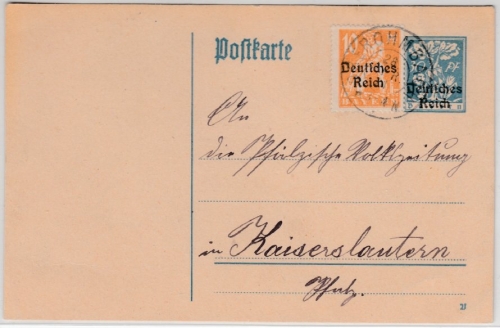 Postkarte
10
Deutsches
Reich
Deutsches
Reich
An
die Pfälzische Volkszeitung
in Kaiserslautern
Pfalz.
27